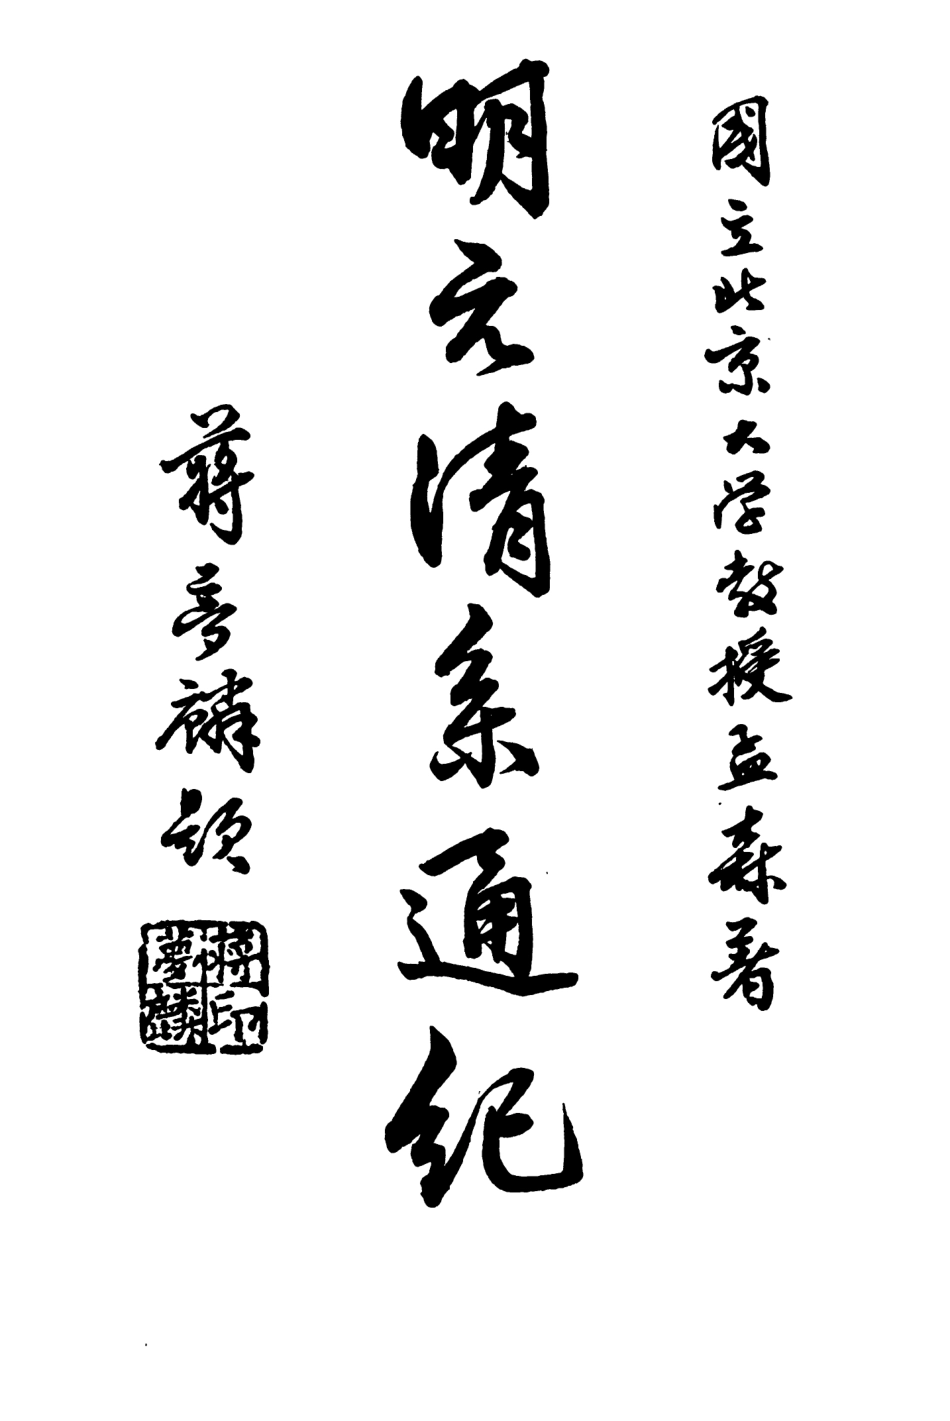 國立北京大学教授孟森著
明元清系通紀
蔣夢麟題
蔣印夢麟